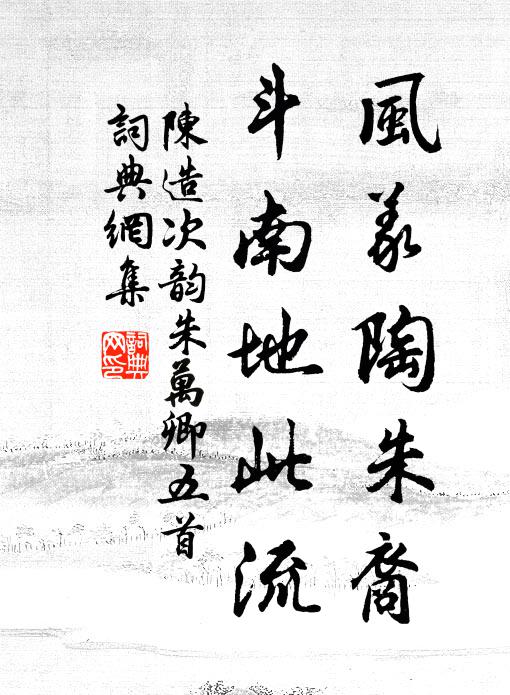 風義陶朱裔
斗南地此流
陳造次韵朱萬卿五首
詞典網集
詞典网印